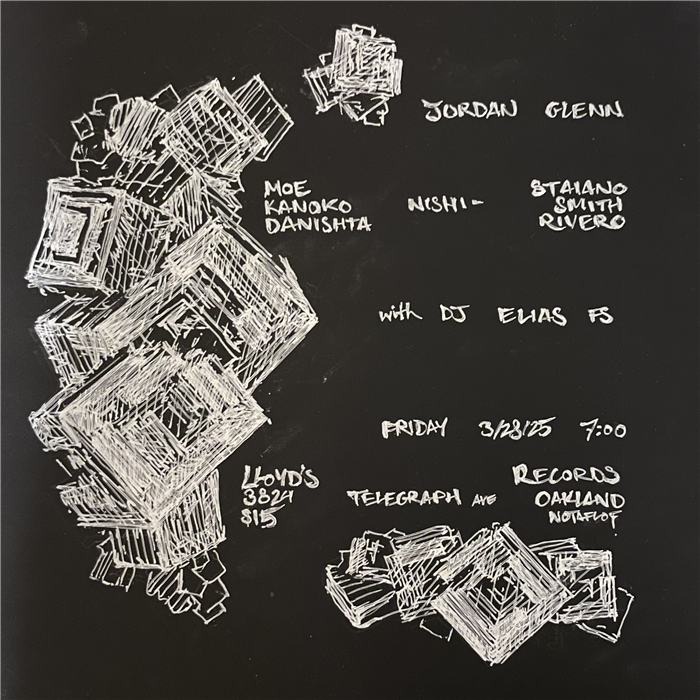 JORDAN GLENN
MOE STAIANO
KANOKO NISHI- SMITH
DANISHTA RIVERO
with DJ ELIAS FS
FRIDAY 3/28/25 7:00
LLOYD'S RECORDS
3824 TELEGRAPH AVE OAKLAND
$15 NOTAFLOF